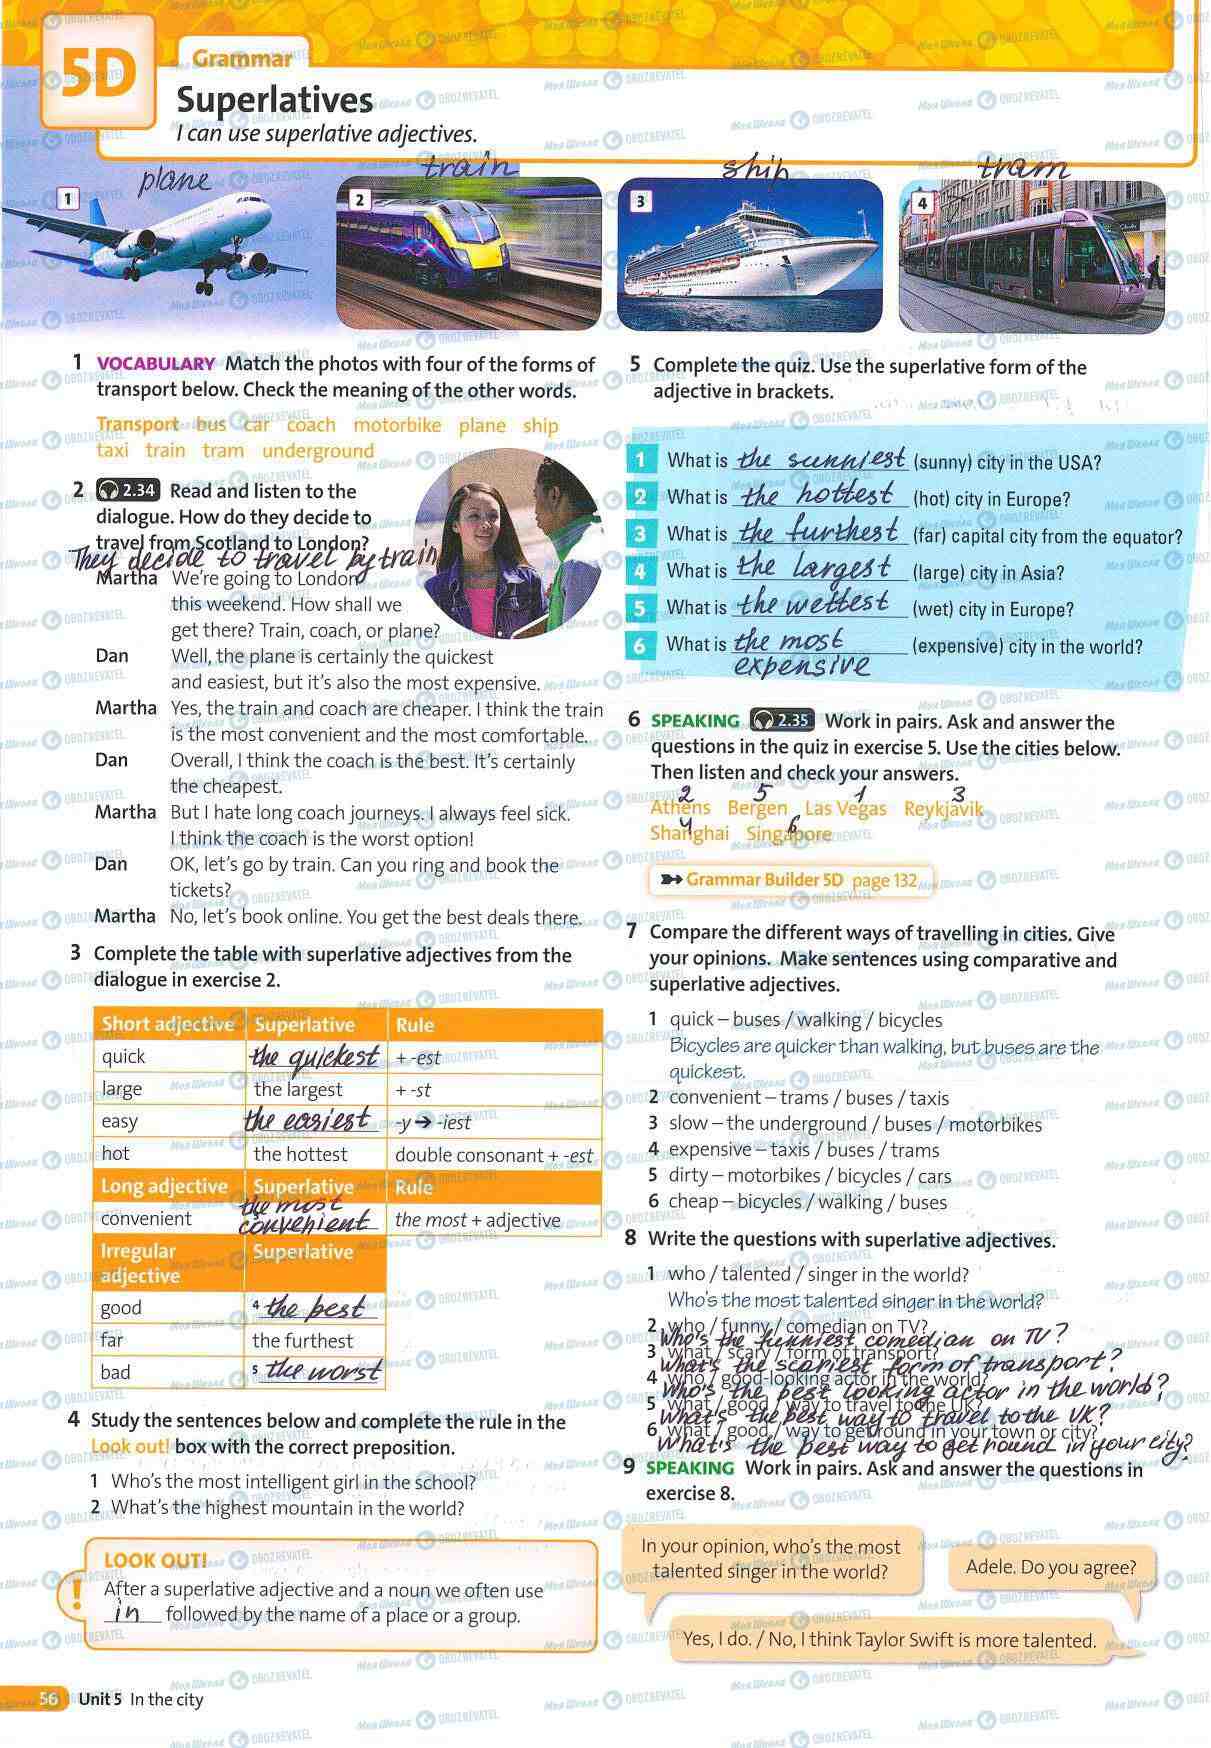 5D
Grammar
Superlatives
I can use superlative adjectives.
plane
train
ship
tram
1
2
3
4
1 VOCABULARY Match the photos with four of the forms of
transport below. Check the meaning of the other words.
Transport bus car coach motorbike plane ship
taxi train tram underground
2 2.34 Read and listen to the
dialogue. How do they decide to
travel from Scotland to London?
They decide to travel by train
Martha We're going to London
this weekend. How shall we
get there? Train, coach, or plane?
Dan Well, the plane is certainly the quickest
and easiest, but it's also the most expensive.
Martha Yes, the train and coach are cheaper. I think the train
is the most convenient and the most comfortable.
Dan Overall, I think the coach is the best. It's certainly
the cheapest.
Martha But I hate long coach journeys. I always feel sick.
I think the coach is the worst option!
Dan OK, let's go by train. Can you ring and book the
tickets?
Martha No, let's book online. You get the best deals there.
3 Complete the table with superlative adjectives from the
dialogue in exercise 2.
Short adjective Superlative Rule
quick the quickest + -est
large the largest + -st
easy the easiest -y ➔ -iest
hot the hottest double consonant + -est
Long adjective Superlative Rule
the most
convenient convenient the most + adjective
Irregular Superlative
adjective
good 4 the best
far the furthest
bad 5 the worst
4 Study the sentences below and complete the rule in the
Look out! box with the correct preposition.
1 Who's the most intelligent girl in the school?
2 What's the highest mountain in the world?
LOOK OUT!
! After a superlative adjective and a noun we often use
in followed by the name of a place or a group.
56 Unit 5 In the city
5 Complete the quiz. Use the superlative form of the
adjective in brackets.
1 What is the sunniest (sunny) city in the USA?
2 What is the hottest (hot) city in Europe?
3 What is the furthest (far) capital city from the equator?
4 What is the largest (large) city in Asia?
5 What is the wettest (wet) city in Europe?
6 What is the most (expensive) city in the world?
expensive
6 SPEAKING 2.35 Work in pairs. Ask and answer the
questions in the quiz in exercise 5. Use the cities below.
Then listen and check your answers.
2 5 1 3
Athens Bergen Las Vegas Reykjavik
4 6
Shanghai Singapore
Grammar Builder 5D page 132
7 Compare the different ways of travelling in cities. Give
your opinions. Make sentences using comparative and
superlative adjectives.
1 quick – buses / walking / bicycles
Bicycles are quicker than walking, but buses are the
quickest.
2 convenient – trams / buses / taxis
3 slow – the underground / buses / motorbikes
4 expensive – taxis / buses / trams
5 dirty – motorbikes / bicycles / cars
6 cheap – bicycles / walking / buses
8 Write the questions with superlative adjectives.
1 who / talented / singer in the world?
Who's the most talented singer in the world?
2 who / funny / comedian on TV?
Who's the funniest comedian on TV?
3 what / scary / form of transport?
What's the scariest form of transport?
4 who / good-looking actor in the world?
Who's the best looking actor in the world?
5 what / good / way to travel to the UK?
What's the best way to travel to the UK?
6 what / good / way to get round in your town or city?
What's the best way to get round in your city?
9 SPEAKING Work in pairs. Ask and answer the questions in
exercise 8.
In your opinion, who's the most
talented singer in the world?
Adele. Do you agree?
Yes, I do. / No, I think Taylor Swift is more talented.
Моя Школа OBOZREVATEL